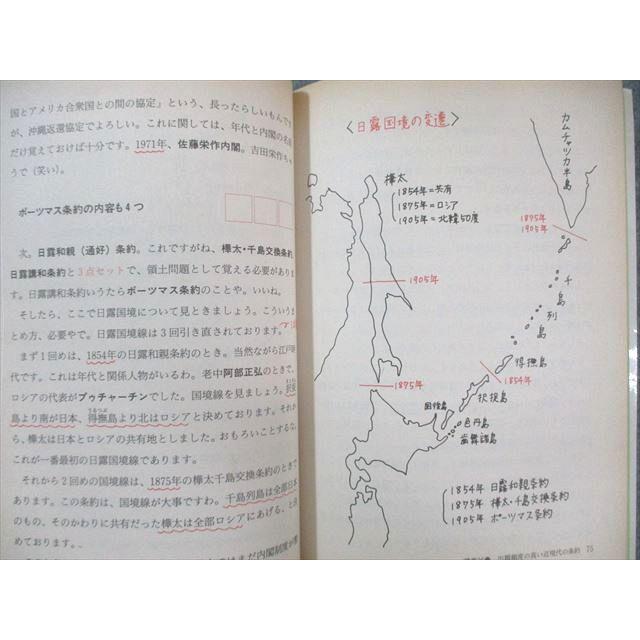 国とアメリカ合衆国との間の協定』という、長ったらしいもんです
が、沖縄返還協定でよろしい。これに関しては、年代と内閣の名前
だけ覚えておけば十分です。1971年、佐藤栄作内閣。吉田栄作ちゃ
うで（笑い）。
ポーツマス条約の内容も4つ
次。日露和親（通好）条約。これですがね、樺太・千島交換条約、
日露講和条約と3点セットで、領土問題として覚える必要がありま
す。日露講和条約いうたらポーツマス条約のことや。いいね。
そしたら、ここで日露国境について見ときましょう。こういうま
とめ方、必要やで。日露国境線は3回引き直されております。
まず1回めは、1854年の日露和親条約のとき。当然ながら江戸時
代です。これは年代と関係人物がいるわ。老中阿部正弘のときで、
ロシアの代表がプゥチャーチンでした。国境線を見ましょう。択捉
島より南が日本、得撫島より北はロシアと決めております。それか
ら、樺太は日本とロシアの共有地としました。おもろいことするな。
これが一番最初の日露国境線であります。
それから2回めの国境線は、1875年の樺太千島交換条約のときで
あります。この条約は、国境線が大事ですわ。千島列島は全部日本
のもの、そのかわりに共有だった樺太は全部ロシアにあげる、と決
めております。
まだ内閣制度が
〈日露国境の変遷〉
カムチャツカ半島
樺太
1854年＝共有
1875年＝ロシア
1905年＝北緯50度
1875年
1905年
千島列島
1905年
得撫島
1854年
1875年
択捉島
国後島
色丹島
歯舞諸島
1854年 日露和親条約
1875年 樺太・千島交換条約
1905年 ポーツマス条約
出題頻度の高い近現代の条約 75